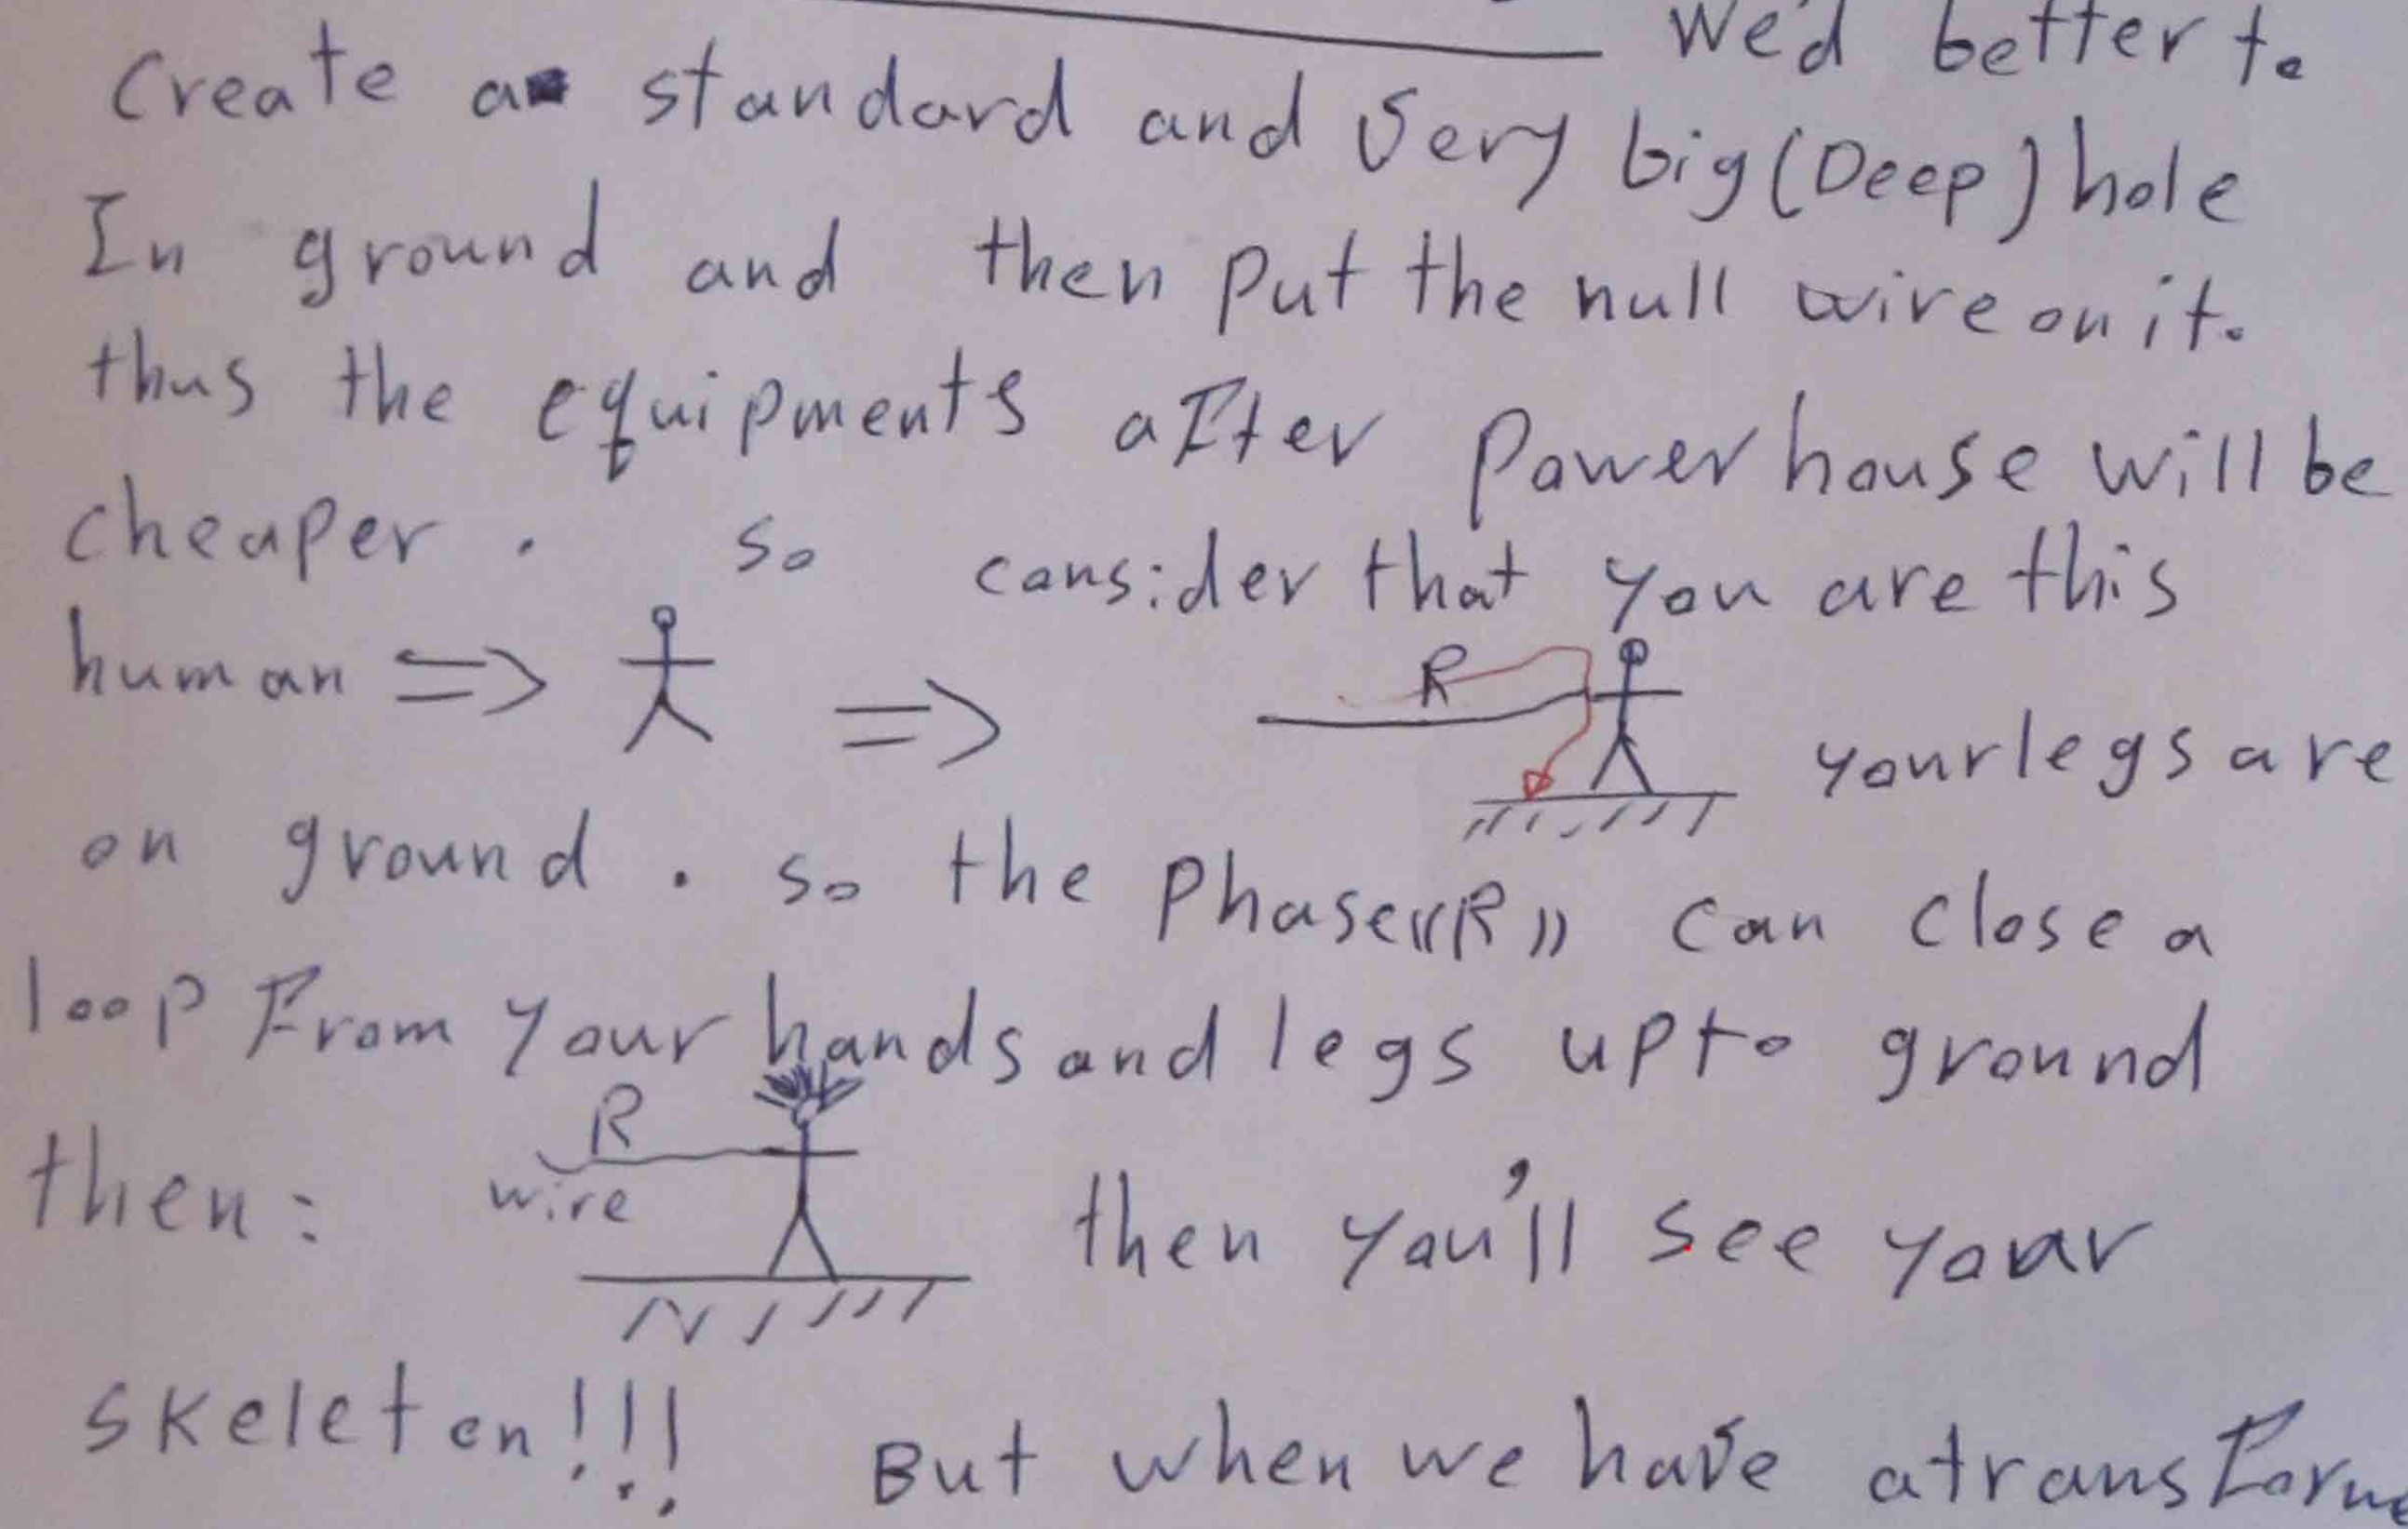 We'd better to
Create a standard and very big (Deep) hole
In ground and then put the null wire on it.
thus the equipments after Power house will be
cheaper. So consider that you are this
human => => R your legs are
on ground. So the Phase «R» can close a
loop From your hands and legs up to ground
then: R wire then you'll see your
skeleton!!! But when we have a transform